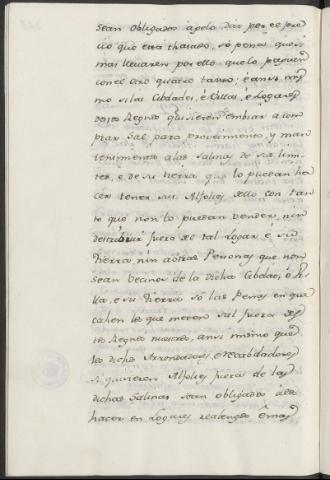 sean obligados apelo dar por el pre
cio que está thasado, só pena, que si
mas llevaren por ello que lo paguen
con el otro quatro tanto; é ansi mis
mo si las Cibdades, é Villas, é Logares
destos Regnos quisieren embiar a com
prar Sal para proveimiento, y man
tenimiento a las Salinas de sus limi
tes, e de su tierra que lo puedan ha
cer tener sus Alfolies dello con tan
to que non lo puedan vender, nin
destribuir fuera de tal Logar é su
tierra, nin a otras Personas que non
sean vecinos de la dicha Cibdad, ó Vi
lla, e su tierra so las Penas en que
cahen los que meten sal fuera des
tos Regnos nuestros, ansi mismo que
los dichos Arrendadores, é recabdadores
si quisieren Alfolies fuera de las
dichas Salinas sean obligados a los
hacer en Logares realengos é mas